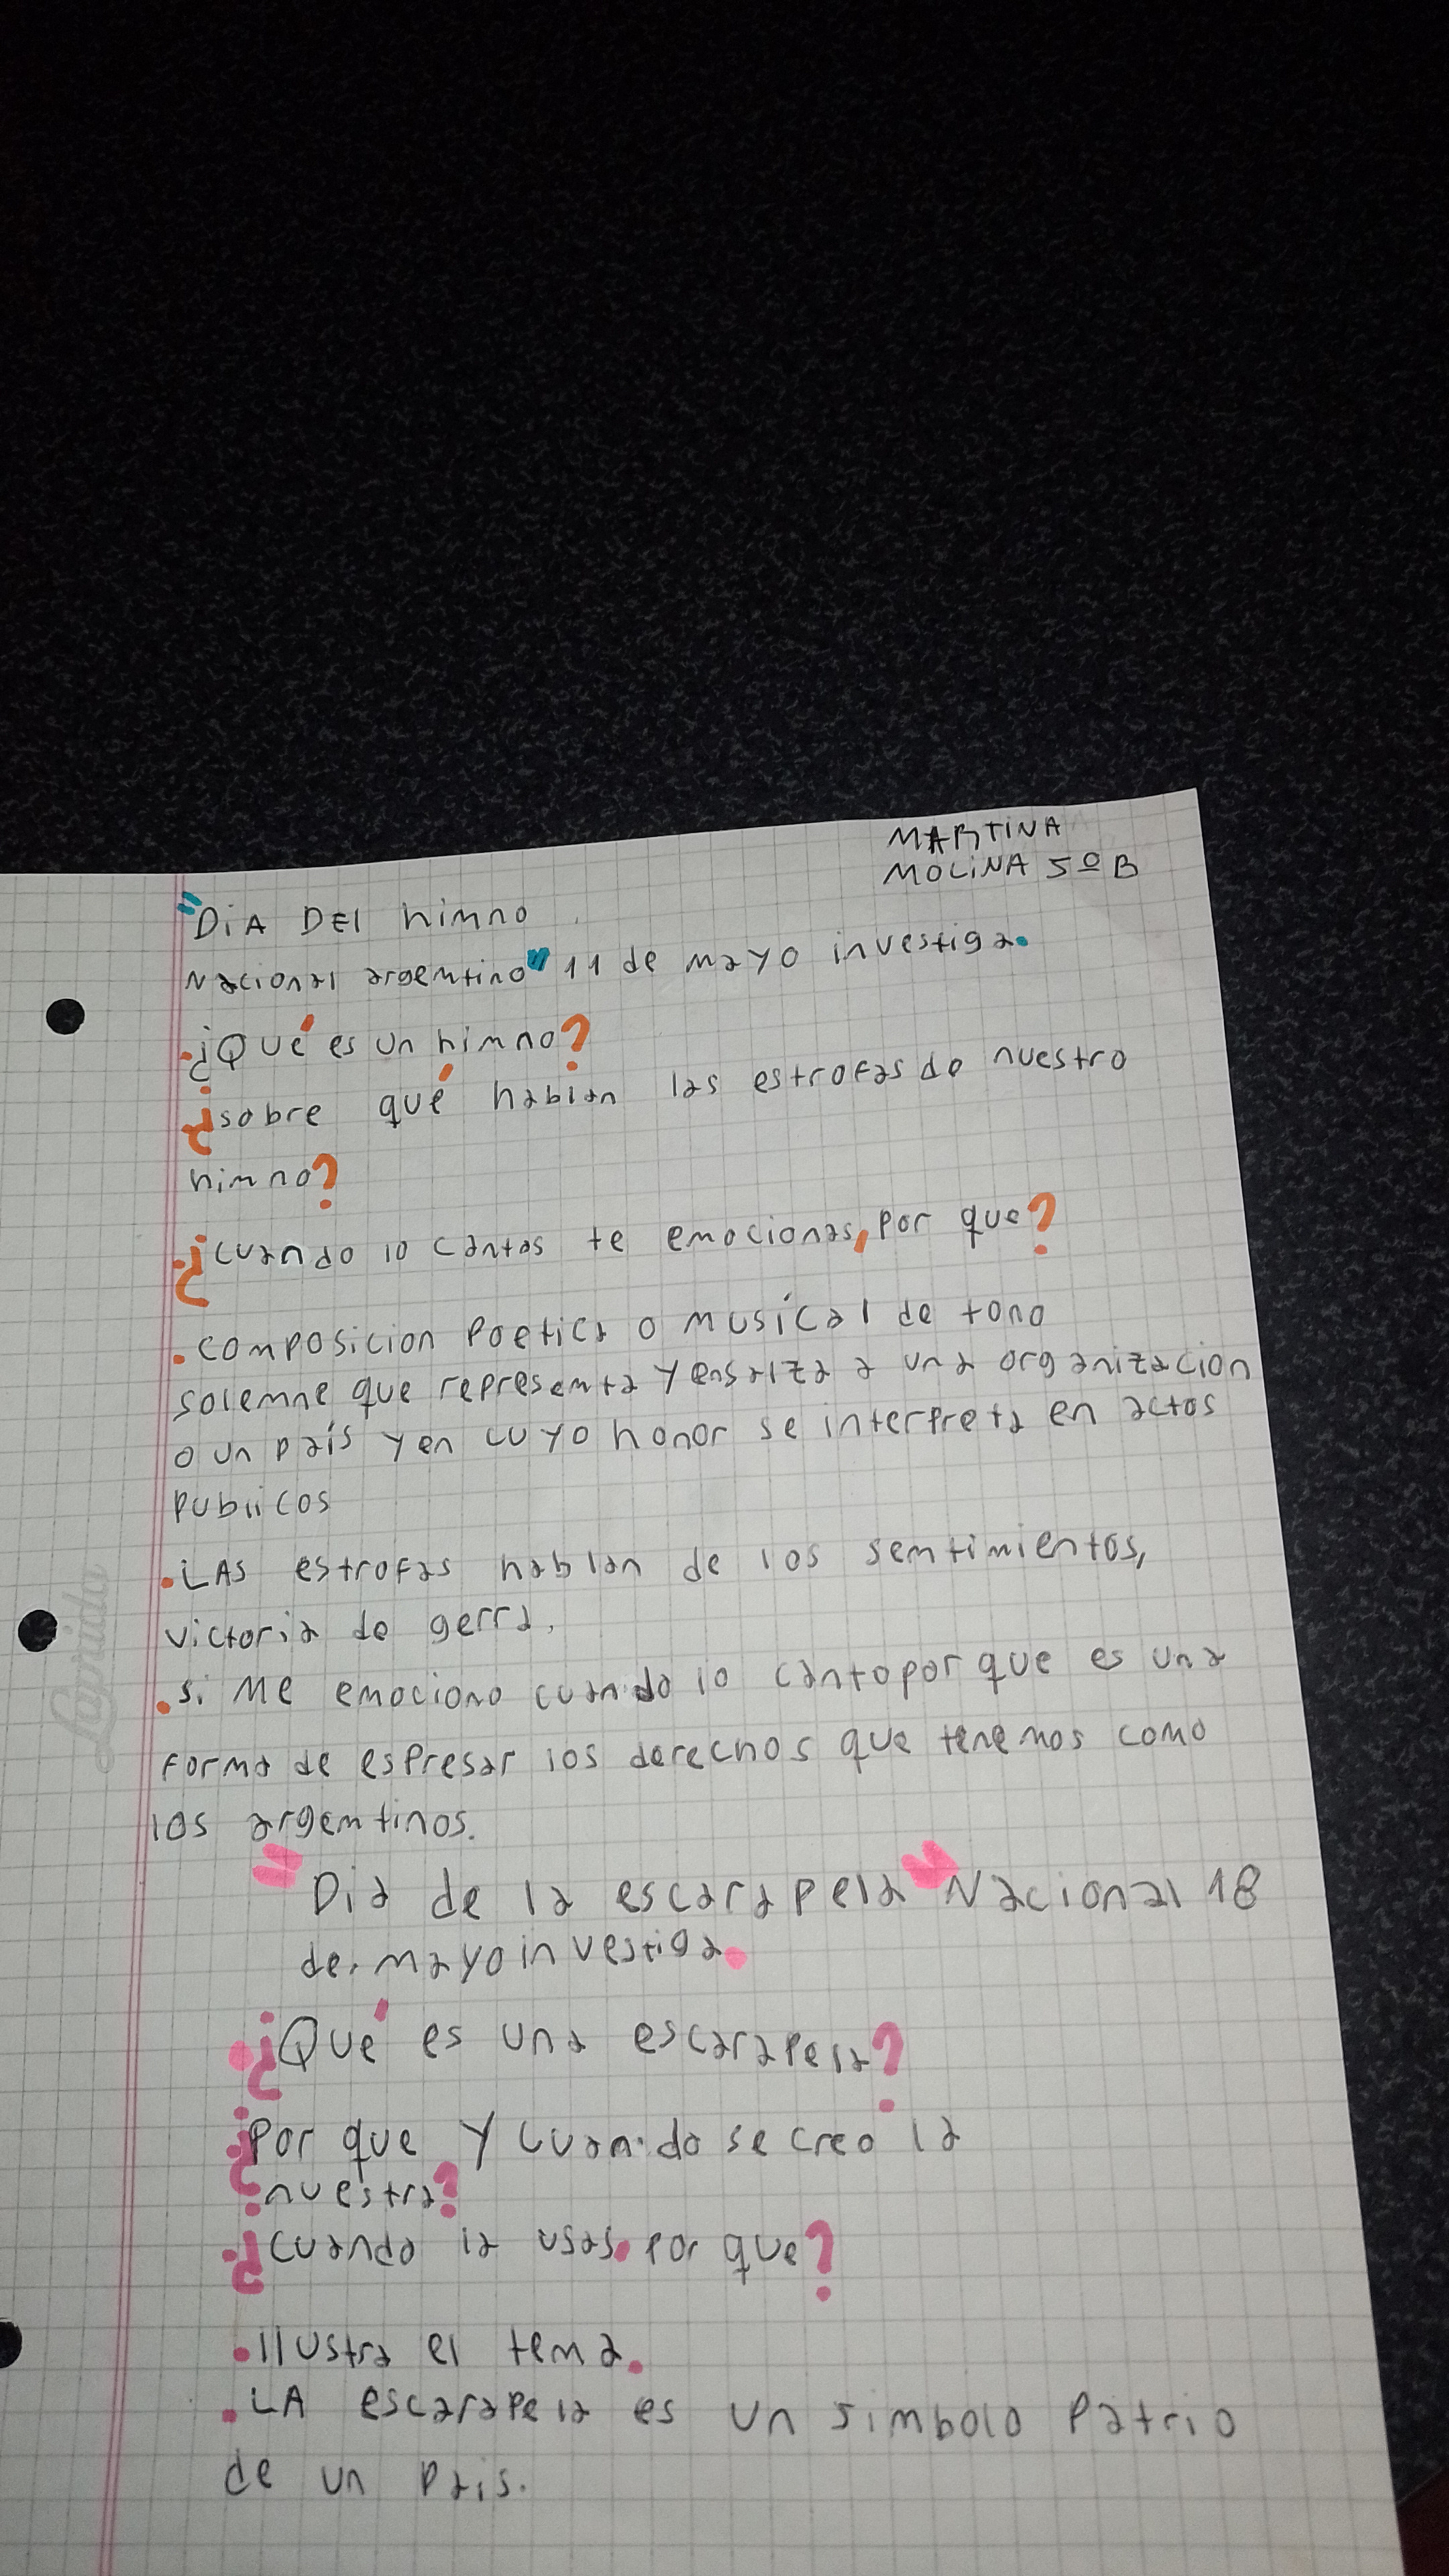 MARTINA
MOLINA 5º B
"DiA DEl himno
Nacional argentino" 11 de mayo investiga.
.¿Qué es un himno?
¿sobre qué hablan las estrofas de nuestro
himno?
.¿cuando lo cantas te emocionas, por que?
.composicion poetica o musical de tono
solemne que representa y ensalza a una organizacion
o un país y en cuyo honor se interpreta en actos
publicos
.LAS estrofas hablan de los sentimientos,
victoria de gerra.
.si Me emociono cuando lo canto por que es una
forma de espresar los derechos que tenemos como
los argentinos.
"Dia de la escarapela" Nacional 18
de mayo investiga.
.¿Qué es una escarapela?
.¿Por que y cuando se creo la
nuestra?
.¿cuando la usas, por que?
.Ilustra el tema.
.LA escarapela es un simbolo Patrio
de un Pais.
Laprida